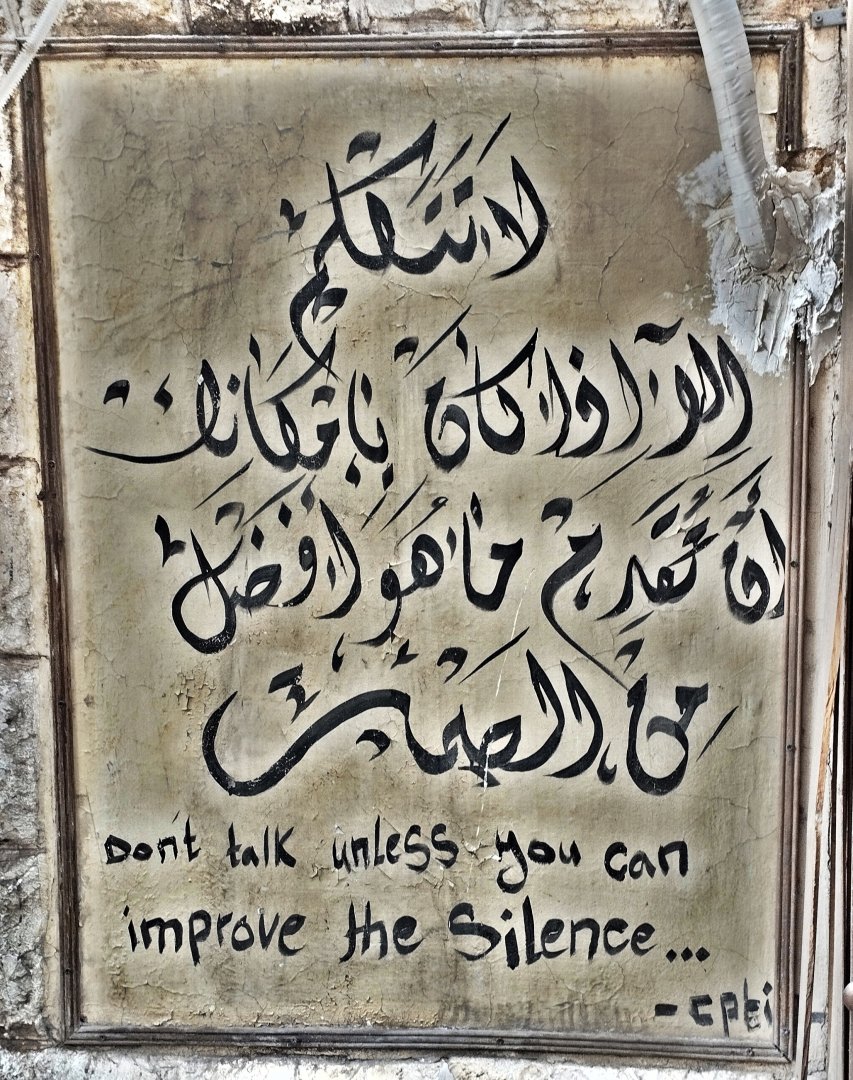 لا تتكلم
إلا إذا كان بإمكانك
أن تقدم ما هو أفضل
من الصمت
Don't talk unless you can
improve the Silence...